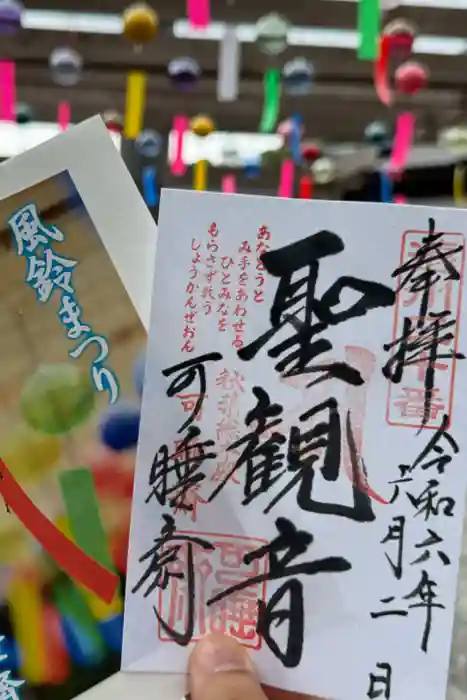 奉拝
令和六年
六月二日
あなとうと
み手をあわせる
ひとみなを
もらさず救う
しょうかんぜおん
聖観音
可睡斎
風鈴まつり